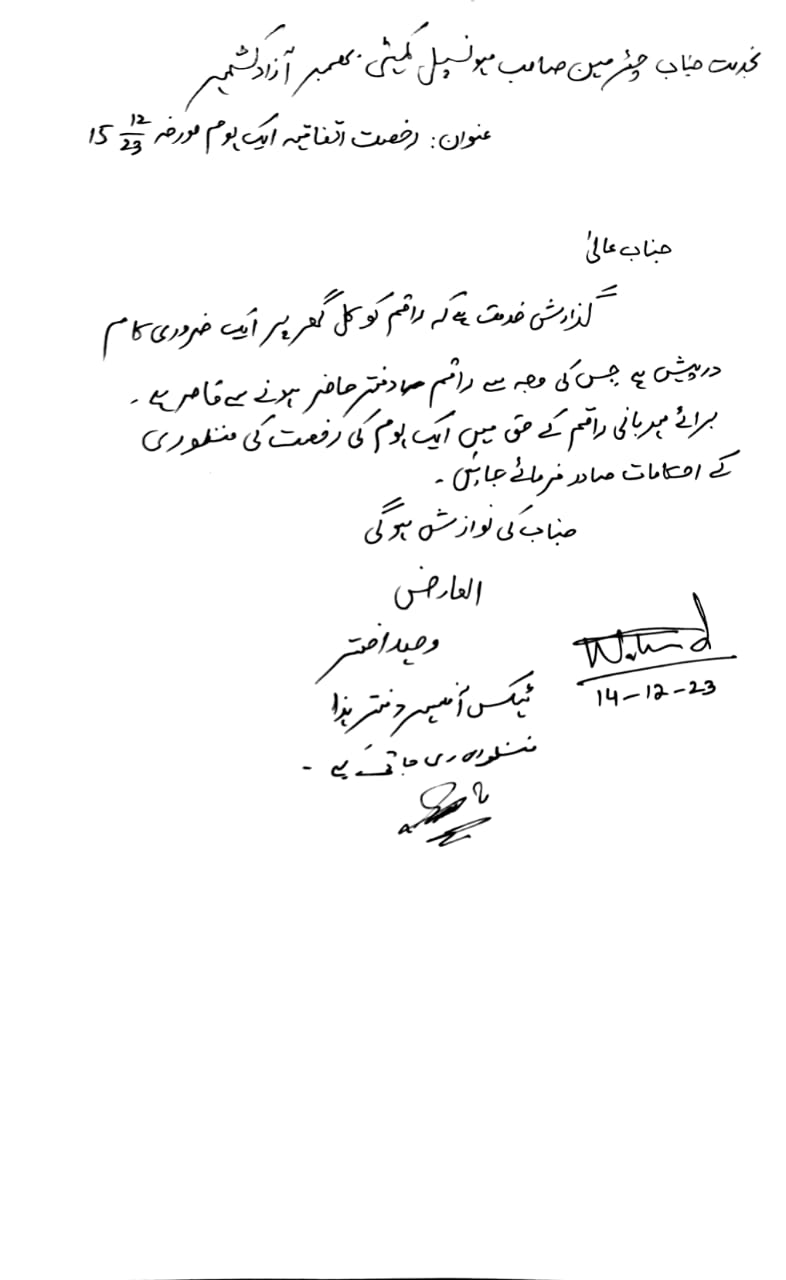 بخدمت جناب چیئرمین صاحب میونسپل کمیٹی بھمبر آزاد کشمیر
عنوان: رخصت اتفاقیہ ایک یوم مورخہ 15 12/23
جناب عالیٰ
گذارش خدمت ہے کہ راقم کو کل گھر پر ایک ضروری کام
درپیش ہے جس کی وجہ سے راقم دفتر حاضر ہونے سے قاصر ہے۔
برائے مہربانی راقم کے حق میں ایک یوم کی رخصت کی منظوری
کے احکامات صادر فرمائے جائیں۔
جناب کی نوازش ہوگی
العارض
وحید اختر
ٹیکس آفیسر دفتر ہذا
14-12-23
منظوری دی جاتی ہے۔